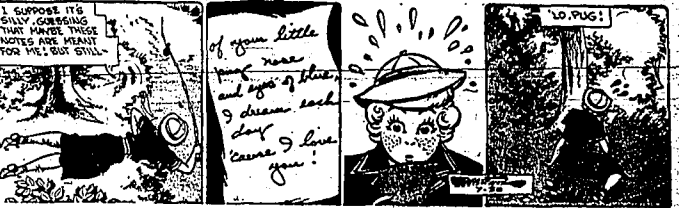 I SUPPOSE IT'S
SILLY, GUESSING
THAT MAYBE THESE
NOTES ARE MEANT
FOR ME! BUT STILL--
of your little
pug nose
and eyes of blue,
I dream each
day
'cause I love
you!
'LO, PUG!
7-30